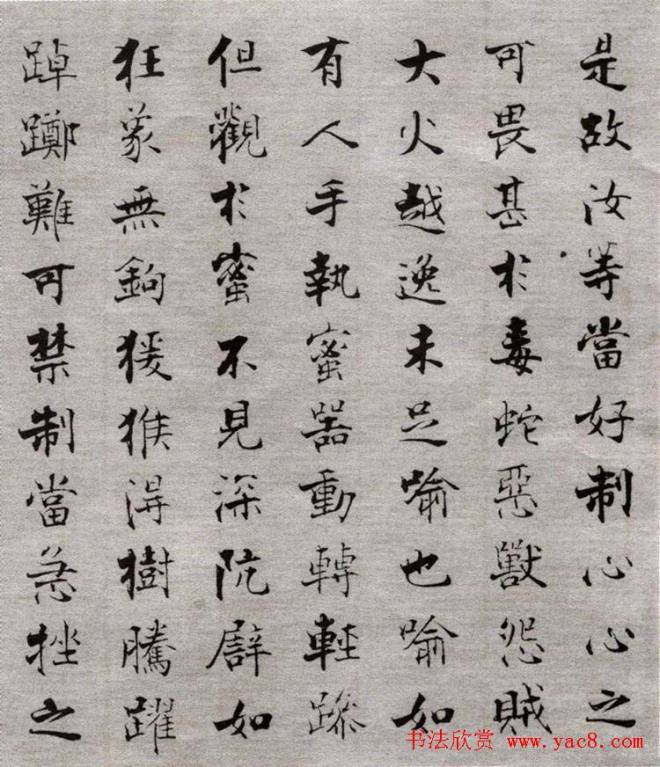 是故汝等當好制心心之
可畏甚於毒蛇惡獸怨賊
大火越逸未足喻也喻如
有人手執蜜器動轉輕躁
但觀於蜜不見深阬辟如
狂象無鉤猨猴得樹騰躍
踔躑難可禁制當急挫之
书法欣赏 www.yac8.com